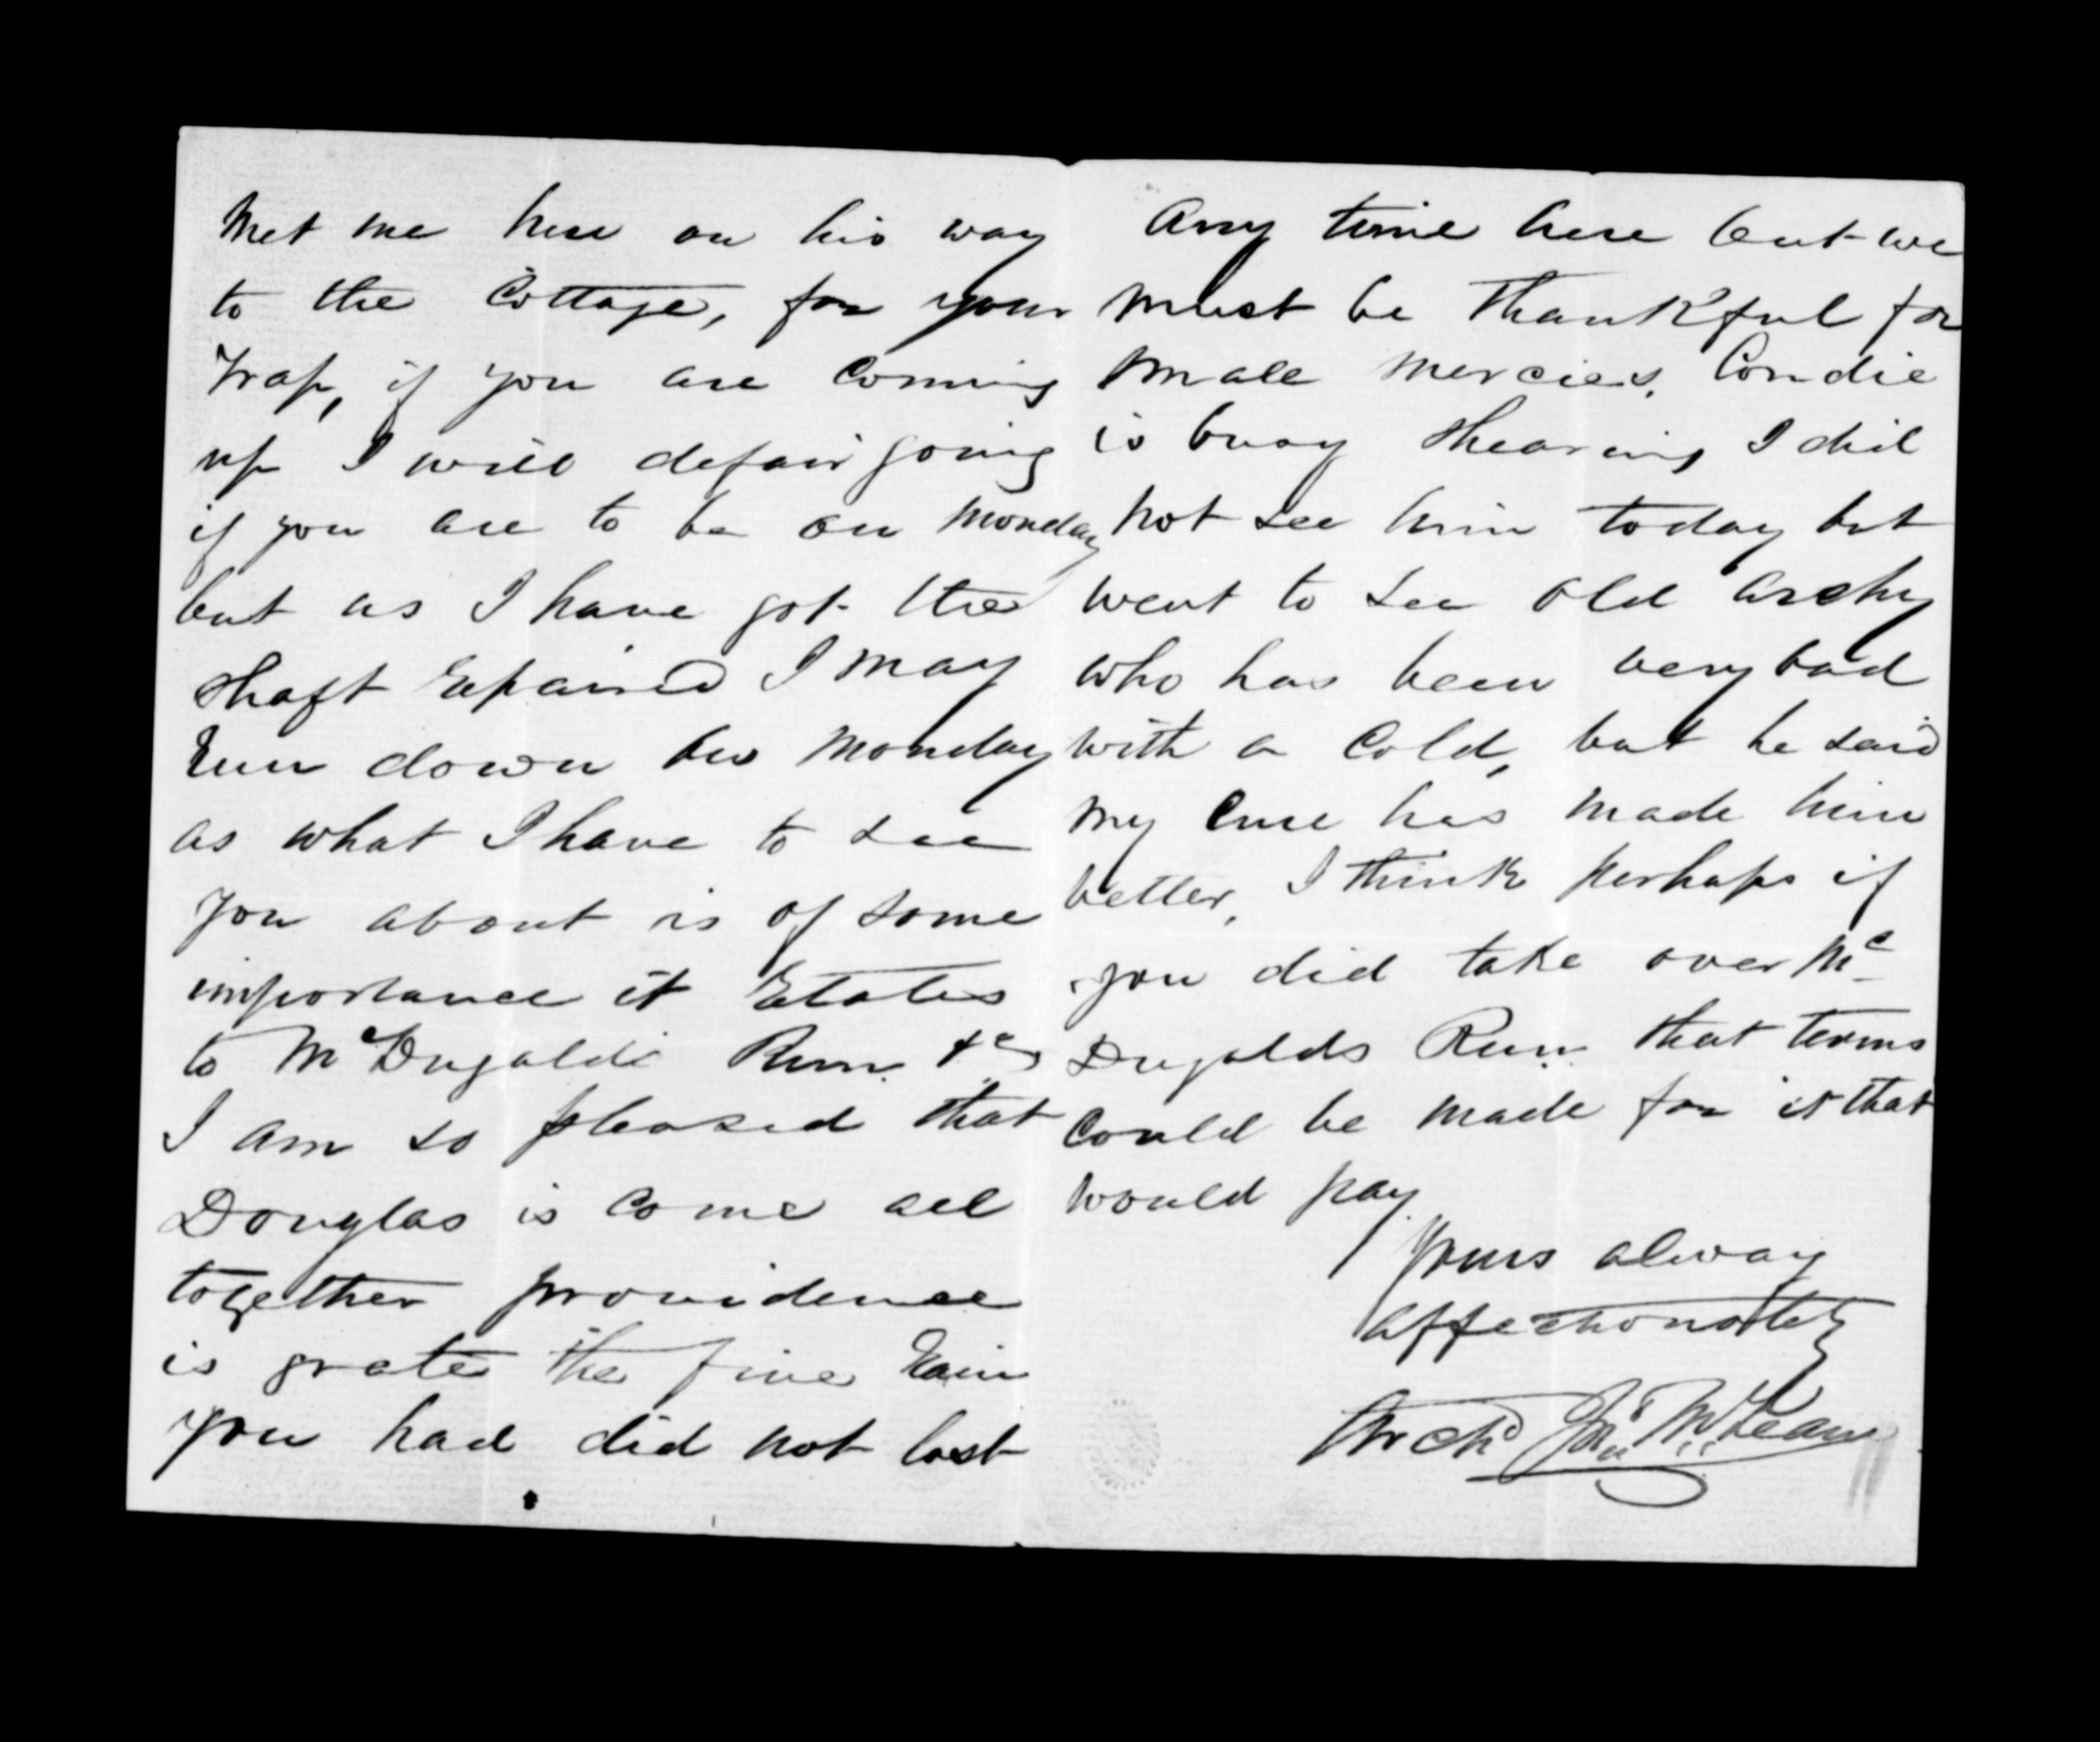 Met me here on his way
to the Cottage, for your
Trap, if you are coming
up I will defair going
if you are to be on Monday
but as I have got the
shaft repaired I may
run down on Monday
as what I have to see
you about is of some
importance it Etates
to McDugalds Run &c
I am so pleased that
Douglas is come all
together providence
is grate the fine rain
you had did not last
Any time here but we
must be thankful for
small mercies, Condie
is busy shearing I did
not see him today but
went to see old Archy
who has been very bad
with a cold, but he said
my cure has made him
better, I think perhaps if
you did take over Mc
Dugalds Run that terms
could be made for it that
would pay
Yours alway
affectionately
Archd Jno McLean